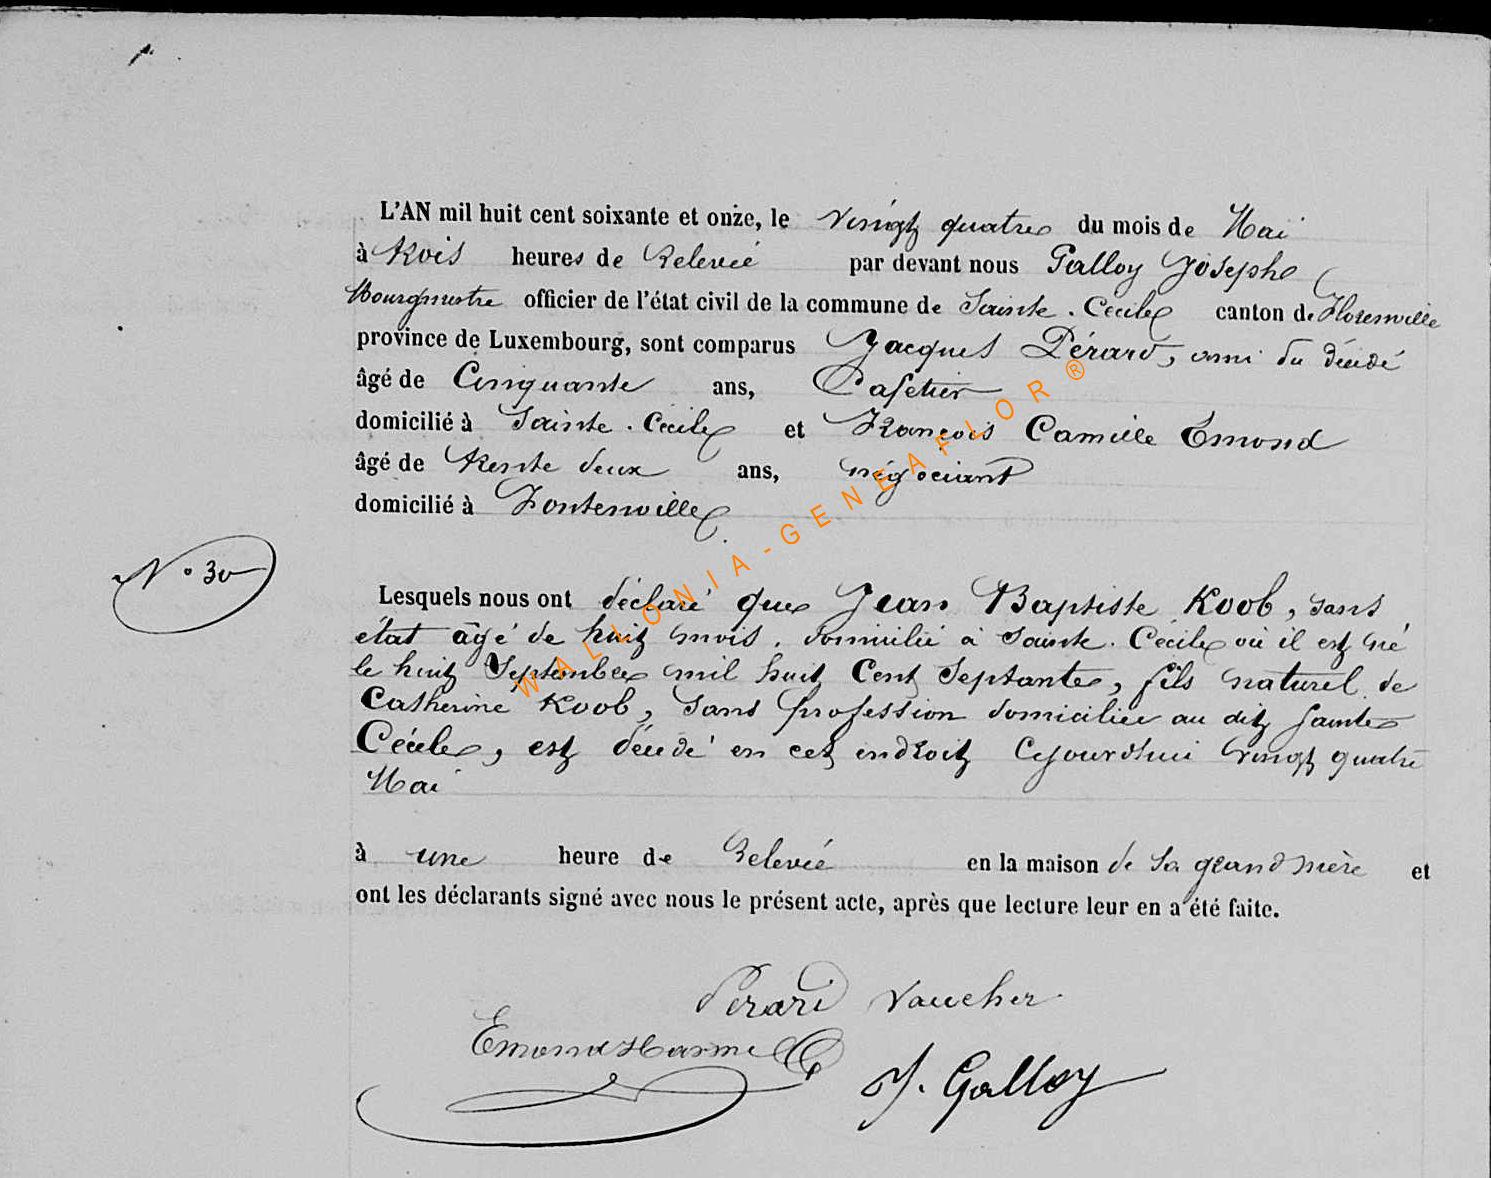 L'AN mil huit cent soixante et onze, le vingt quatre du mois de Mai
à trois heures de Relevée par devant nous Galloy Joseph
Bourgmestre officier de l'état civil de la commune de Sainte-Cécile canton de Florenville
province de Luxembourg, sont comparus Jacques Pérard, ami du décédé
âgé de Cinquante ans, Cafetier
domicilié à Sainte-Cécile et François Camille Emond
âgé de trente deux ans, négociant
domicilié à Fontenoille
N° 30
Lesquels nous ont déclaré que Jean Baptiste Koob, sans
état âgé de huit mois, domicilié à Sainte-Cécile où il est né
le huit Septembre mil huit Cent Septante, fils naturel de
Catherine Koob, Sans profession domiciliée au dit Sainte
Cécile, est décédé en cet endroit Cejourd'hui vingt quatre
Mai
à une heure de Relevée en la maison de sa grand mère et
ont les déclarants signé avec nous le présent acte, après que lecture leur en a été faite.
Perard Vaucher
Emond
J. Galloy
WALLONIA-GENEAFLOR®